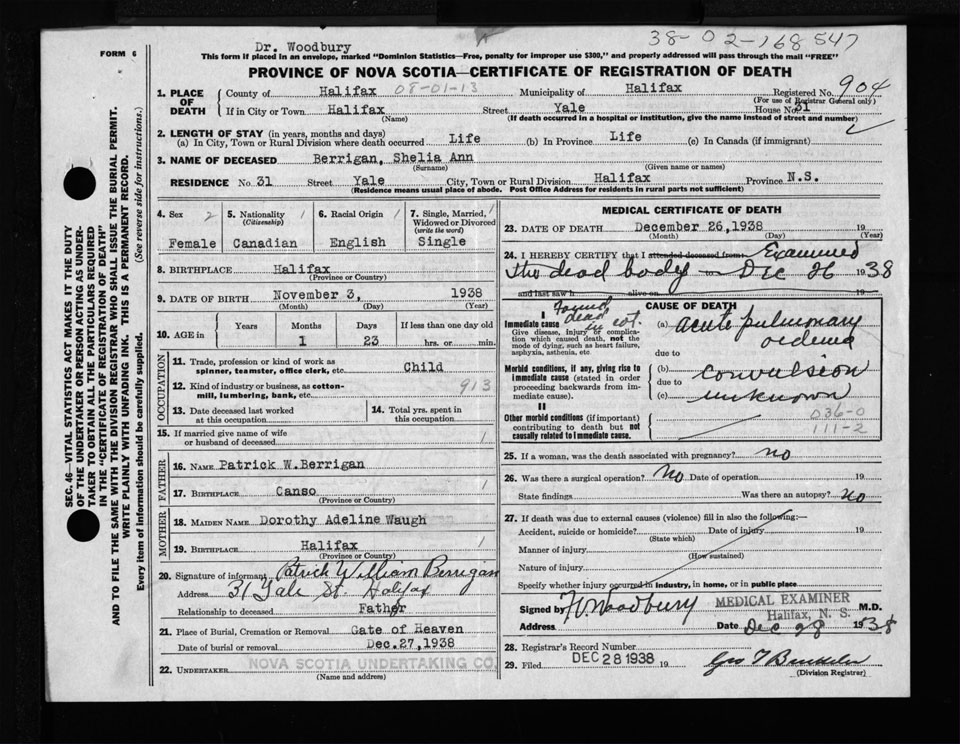 38-02-168547
FORM 6
Dr. Woodbury
This form if placed in an envelope, marked "Dominion Statistics—Free, penalty for improper use $300," and properly addressed will pass through the mail "FREE"
PROVINCE OF NOVA SCOTIA—CERTIFICATE OF REGISTRATION OF DEATH
SEC. 46—VITAL STATISTICS ACT MAKES IT THE DUTY
OF THE UNDERTAKER OR PERSON ACTING AS UNDER-
TAKER TO OBTAIN ALL THE PARTICULARS REQUIRED
IN THE "CERTIFICATE OF REGISTRATION OF DEATH"
AND TO FILE THE SAME WITH THE DIVISION REGISTRAR WHO SHALL ISSUE THE BURIAL PERMIT.
WRITE PLAINLY WITH UNFADING INK. THIS IS A PERMANENT RECORD.
Every item of information should be carefully supplied. (See reverse side for instructions.)
1. PLACE OF DEATH
County of Halifax 08-01-13 Municipality of Halifax Registered No. 904
(For use of Registrar General only)
If in City or Town Halifax Street Yale House No. 31
(Name) (If death occurred in a hospital or institution, give the name instead of street and number)
2. LENGTH OF STAY (in years, months and days)
(a) In City, Town or Rural Division where death occurred Life (b) In Province Life (c) In Canada (if immigrant)
3. NAME OF DECEASED Berrigan, Shelia Ann
(Surname) (Given name or names)
RESIDENCE No. 31 Street Yale City, Town or Rural Division Halifax Province N.S.
(Residence means usual place of abode. Post Office Address for residents in rural parts not sufficient)
4. Sex 2 Female
5. Nationality 1 (Citizenship) Canadian
6. Racial Origin 1 English
7. Single, Married, Widowed or Divorced (write the word) 1 Single
8. BIRTHPLACE Halifax
(Province or Country)
9. DATE OF BIRTH November 3, 1938
(Month) (Day) (Year)
10. AGE in Years Months Days If less than one day old
1 23 hrs. or min.
OCCUPATION
11. Trade, profession or kind of work as
spinner, teamster, office clerk, etc. Child
12. Kind of industry or business, as cotton-
mill, lumbering, bank, etc. 913
13. Date deceased last worked
at this occupation
14. Total yrs. spent in
this occupation
15. If married give name of wife
or husband of deceased 1
FATHER
16. NAME Patrick W. Berrigan
17. BIRTHPLACE Canso 1
(Province or Country)
MOTHER
18. MAIDEN NAME Dorothy Adeline Waugh
19. BIRTHPLACE Halifax 1
(Province or Country)
20. Signature of informant Patrick William Berrigan
Address 31 Yale St. Halifax
Relationship to deceased Father
21. Place of Burial, Cremation or Removal Gate of Heaven
Date of burial or removal Dec. 27, 1938
22. UNDERTAKER NOVA SCOTIA UNDERTAKING CO.
(Name and address)
MEDICAL CERTIFICATE OF DEATH
23. DATE OF DEATH December 26, 1938 19
(Month) (Day) (Year)
24. I HEREBY CERTIFY that I attended deceased from Examined
the dead body on Dec 26 1938
and last saw h alive on 19
CAUSE OF DEATH
I
Found dead in cot.
Immediate cause
Give disease, injury or complica-
tion which caused death, not the
mode of dying, such as heart failure,
asphyxia, asthenia, etc.
(a) acute pulmonary
oedema
due to
Morbid conditions, if any, giving rise to
immediate cause (stated in order
proceeding backwards from im-
mediate cause).
(b) convulsion
due to
(c) unknown
II
Other morbid conditions (if important)
contributing to death but not
causally related to immediate cause.
036-0
111-2
25. If a woman, was the death associated with pregnancy? no
26. Was there a surgical operation? No Date of operation 19
State findings Was there an autopsy? no
27. If death was due to external causes (violence) fill in also the following:—
Accident, suicide or homicide? Date of injury 19
(State which)
Manner of injury
(How sustained)
Nature of injury
Specify whether injury occurred in industry, in home, or in public place
Signed by Woodbury M.D.
MEDICAL EXAMINER
Halifax, N. S.
Address Date Dec 28 1938
28. Registrar's Record Number
29. Filed DEC 28 1938 19
(Division Registrar)